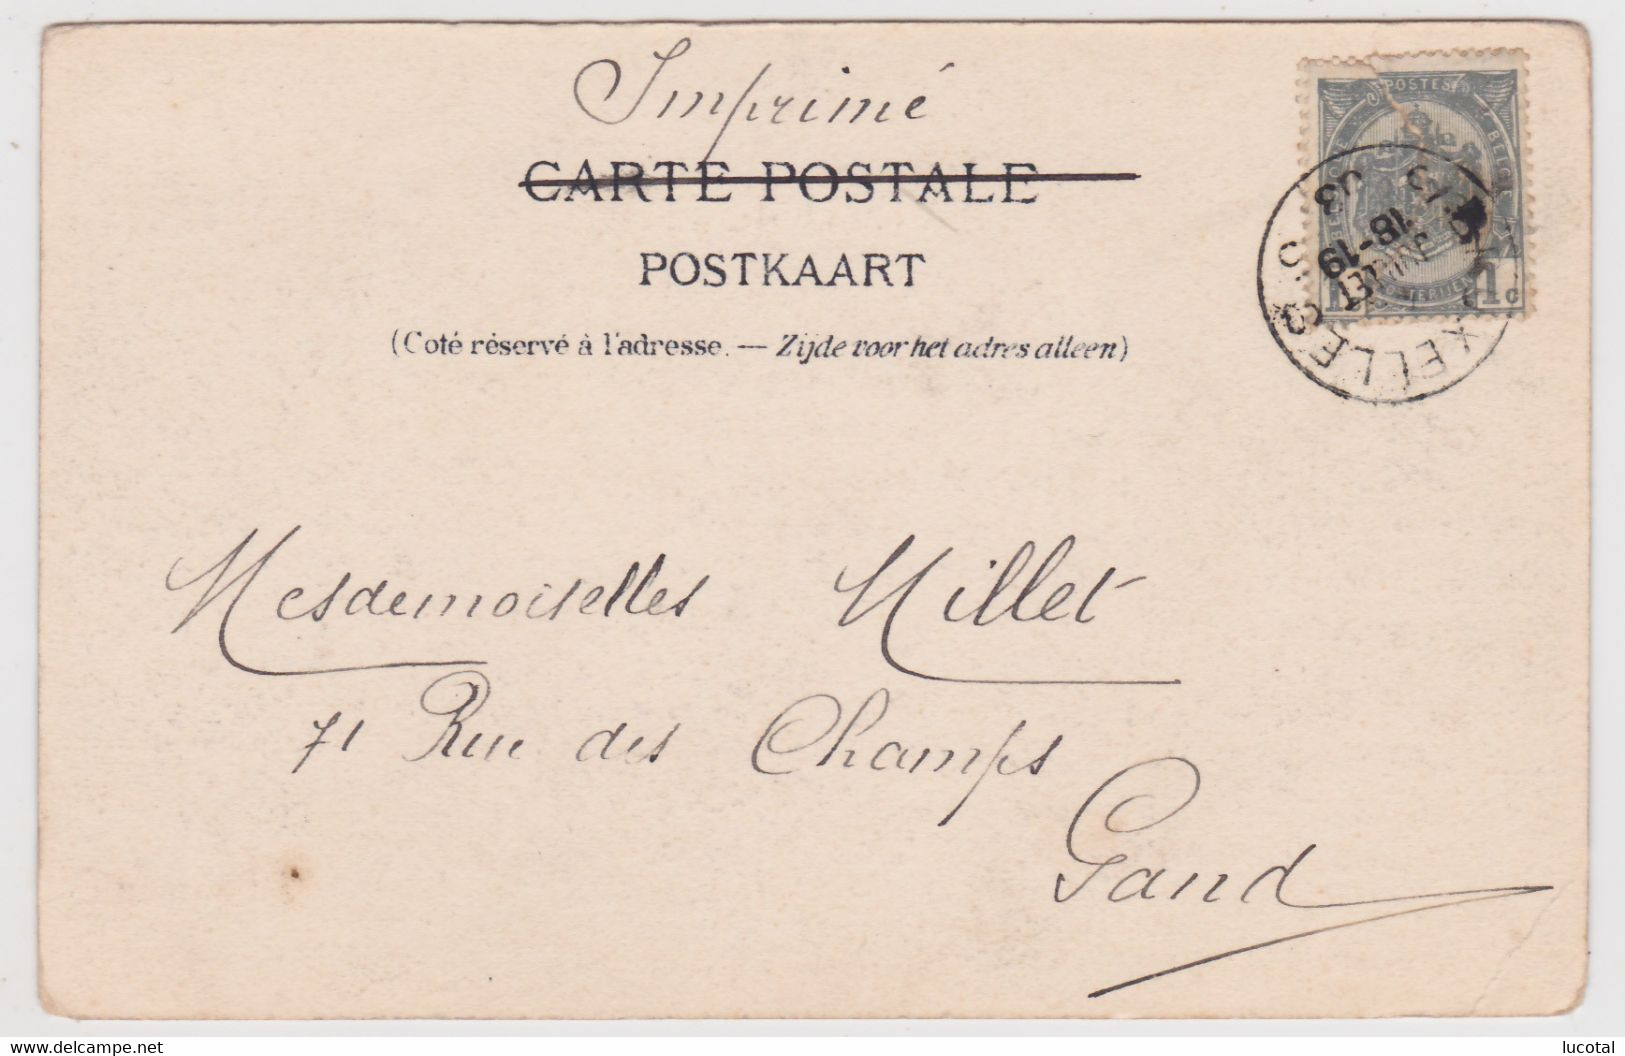 Imprimé
CARTE POSTALE
POSTKAART
(Coté réservé à l'adresse. — Zijde voor het adres alleen)
POSTES
BELGIQUE
1c
18-19
JUILLET
03
Mesdemoiselles Millet
71 Rue des Champs
Gand
lucotal